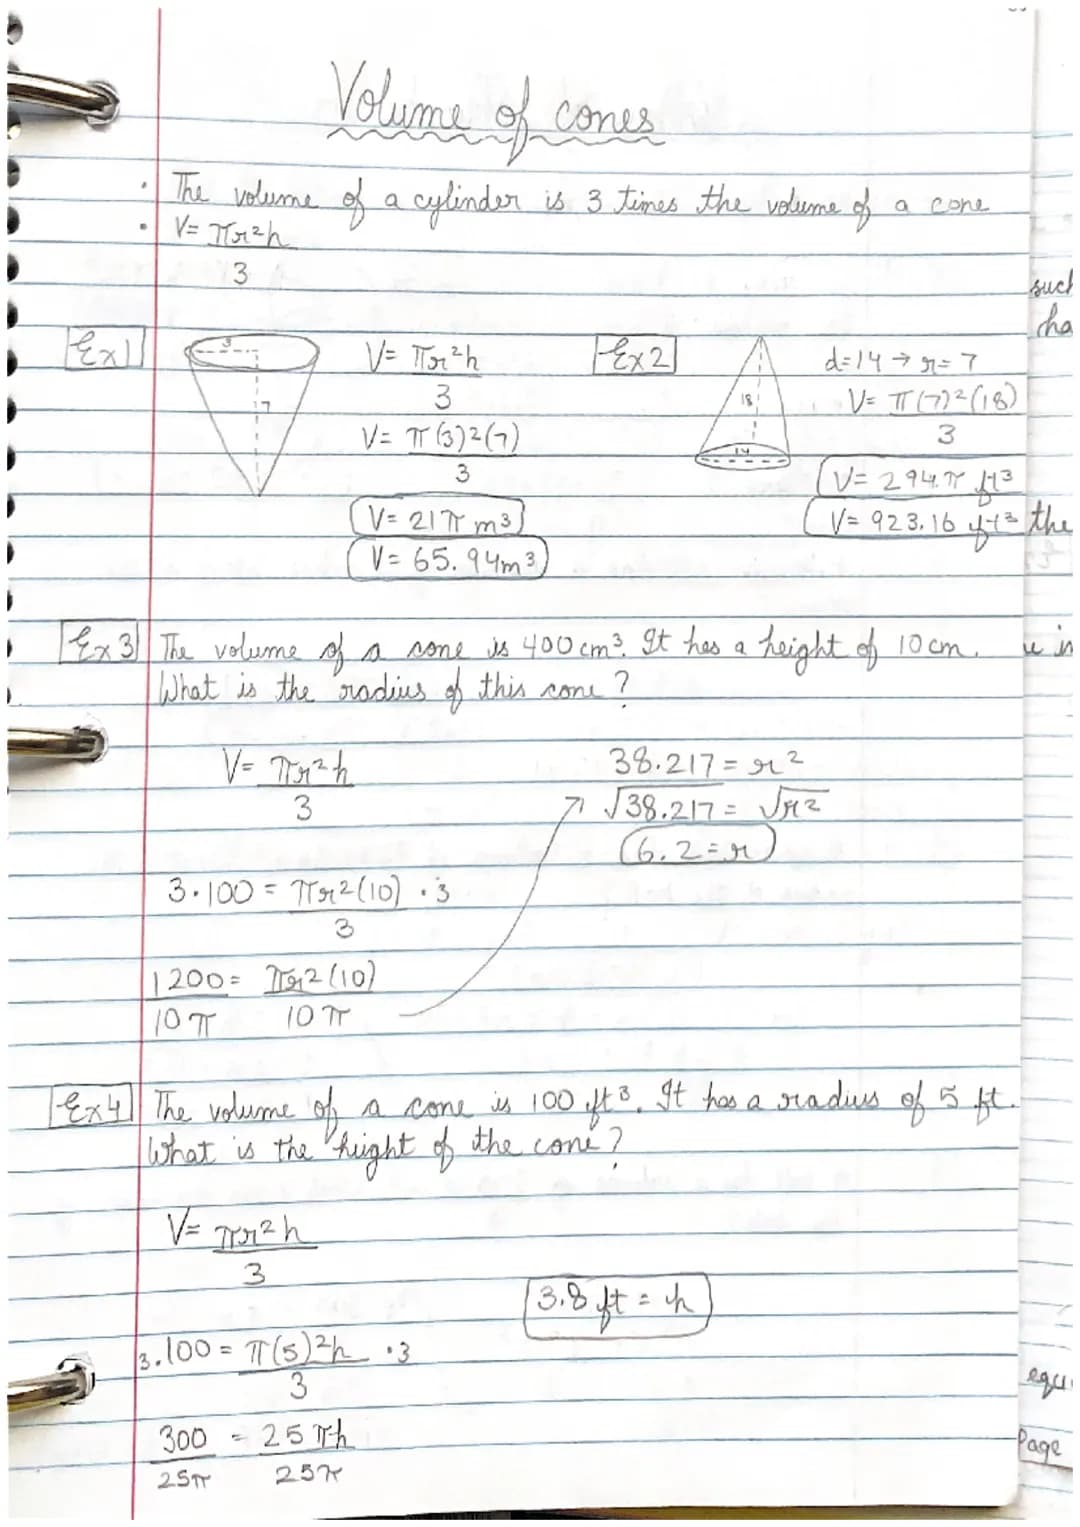 Volume of cones
• The volume of a cylinder is 3 times the volume of a cone
• V= πr²h
3
such
ha
Ex1
3
7
V= πr²h
3
V= π(3)²(7)
3
V= 21π m³
V= 65.94m³
Ex2
18
14
d=14 → r=7
V= π(7)²(18)
3
V= 294π ft³
V= 923.16 ft³
the
Ex3 The volume of a cone is 400 cm³. It has a height of 10 cm.
What is the radius of this cone?
V= πr²h
3
3·100 = πr²(10) ·3
3
1200= πr²(10)
10π 10π
38.217= r²
√38.217= √r²
6.2=r
Ex4 The volume of a cone is 100 ft³. It has a radius of 5 ft.
What is the height of the cone?
V= πr²h
3
3.8 ft = h
3.100= π(5)²h ·3
3
300 = 25πh
25π 25π
equ
Page